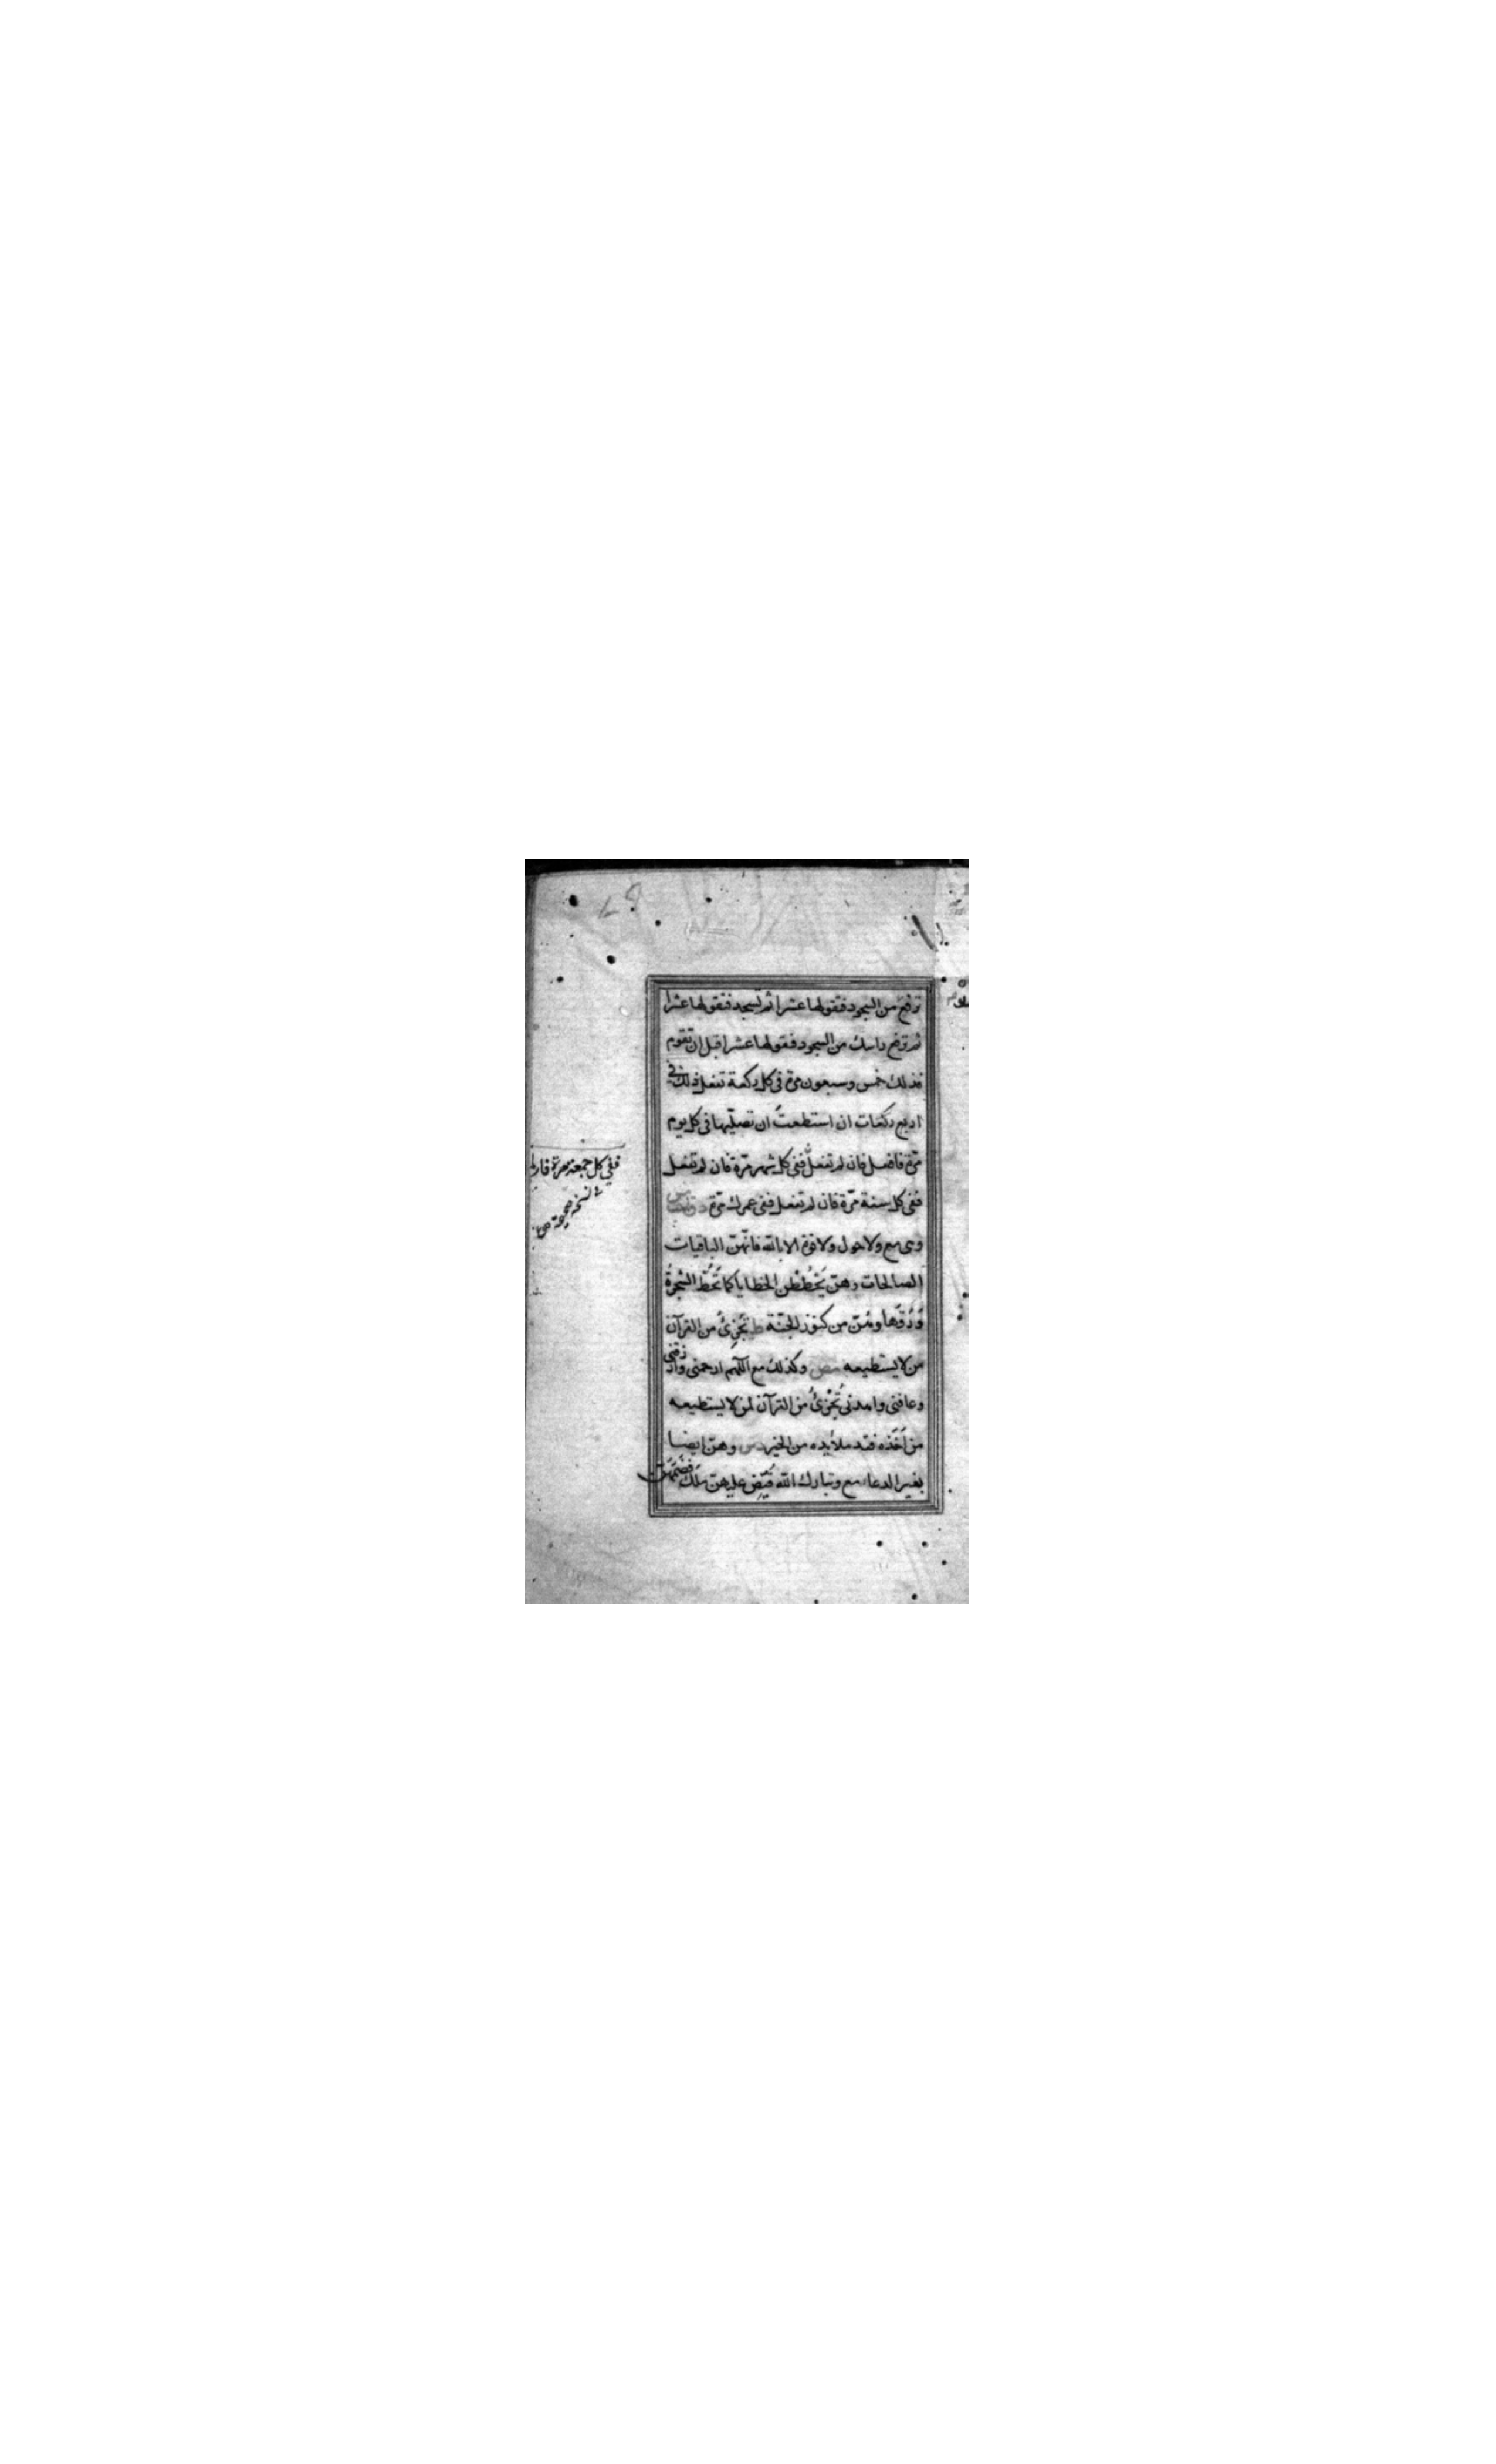 ترفع من السجود فتقولها عشرا ثم تسجد فتقولها عشرا
ثم ترفع راسك من السجود فتقولها عشرا قبل ان تقوم
فذلك خمس وسبعون مرة في كل ركعة تفعل ذلك في
اربع ركعات ان استطعت ان تصليها في كل يوم
مرّة فافعل فان لم تفعل ففي كل شهر مرّة فان لم تفعل
ففي كل سنة مرّة فان لم تفعل ففي عمرك مرّة
وهي مع ولا حول ولا قوة الا بالله فانهنّ الباقيات
الصالحات وهنّ يَحْطُطْن الخطايا كما تَحُطّ الشجرةُ
وَرَقَها وهُنّ من كنوز الجنّة ط تُجْزِئُ من القرآن
من لا يستطيعه مص وكذلك مع اللّهم ارحمني وارزقني
وعافني واهدني تُجْزِئُ من القرآن لمن لا يستطيعه
من اَخَذه فقد ملأ يده من الخير د س وهنّ ايضا
بغير الدعاء مع وتبارك الله قُيِّض عليهنّ مَلَك فضمّهنّ
ففي كل جمعة مرة فان لم
نسخه صحيحة